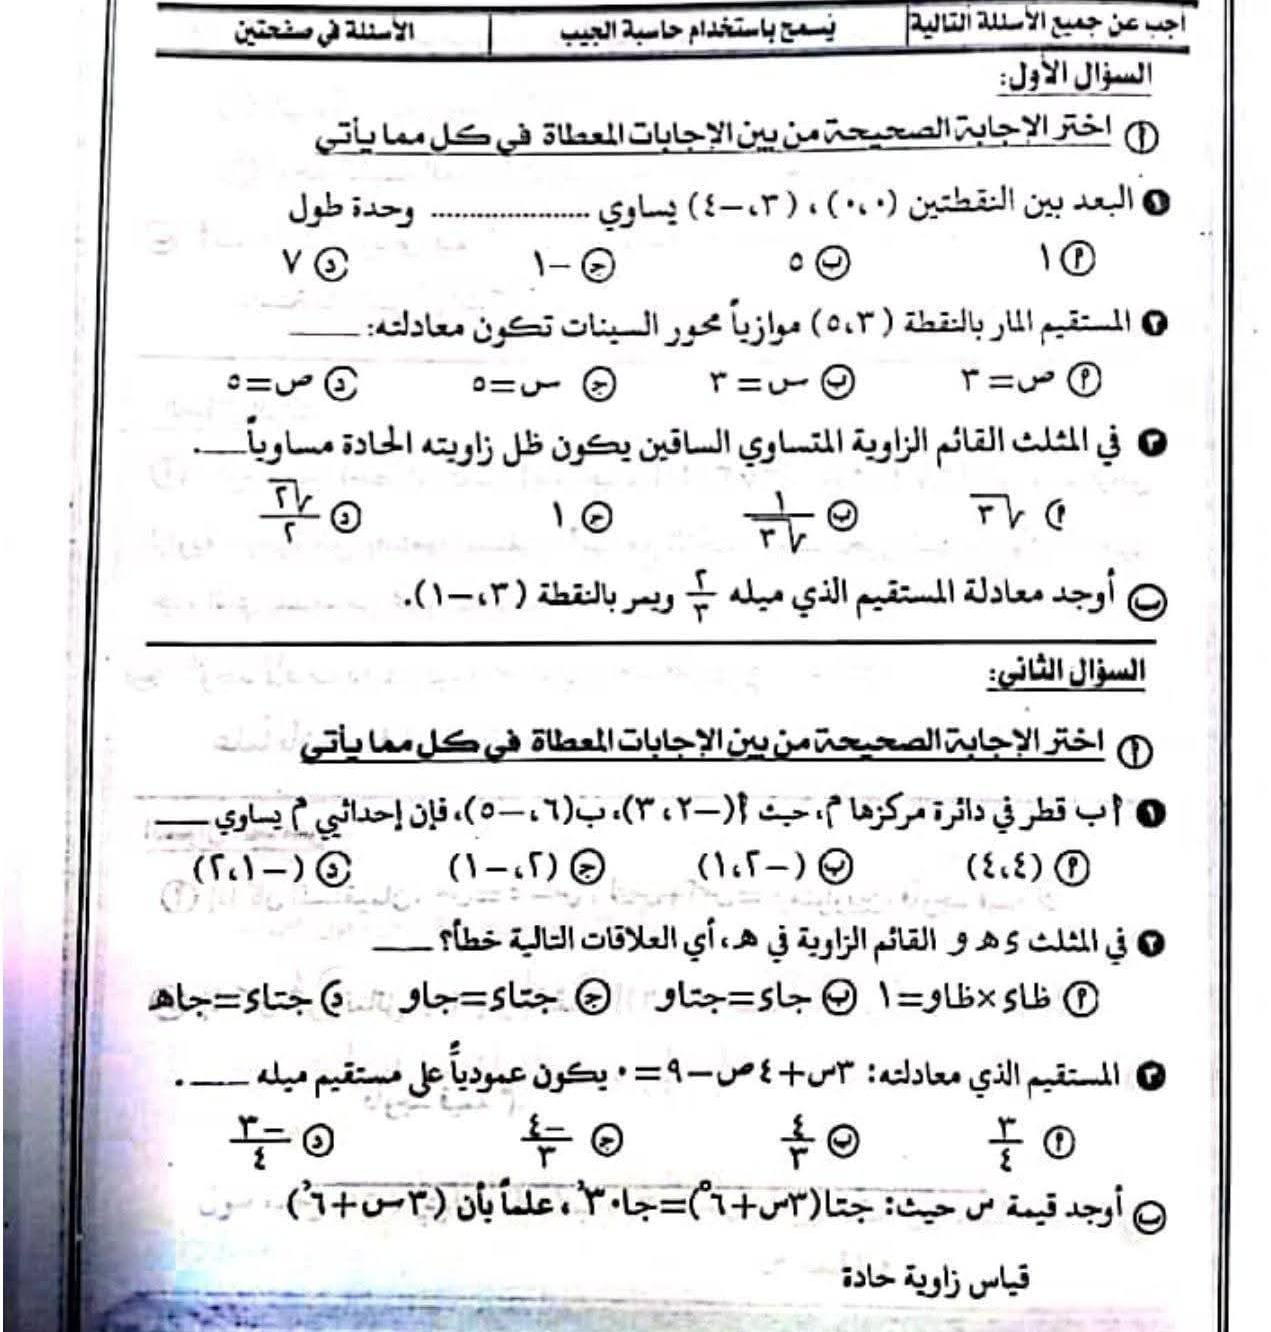 أجب عن جميع الأسئلة التالية | يُسمح باستخدام حاسبة الجيب | الأسئلة في صفحتين
السؤال الأول:
أ اختر الإجابة الصحيحة من بين الإجابات المعطاة في كل مما يأتي
١ البعد بين النقطتين (٠،٠)، (٣،-٤) يساوي .................... وحدة طول
أ ١ ب ٥ ج -١ د ٧
٢ المستقيم المار بالنقطة (٥،٣) موازياً محور السينات تكون معادلته: ____
أ ص=٣ ب س=٣ ج س=٥ د ص=٥
٣ في المثلث القائم الزاوية المتساوي الساقين يكون ظل زاويته الحادة مساوياً ___.
أ √٣ ب ١/√٣ ج ١ د √٢/٢
ب أوجد معادلة المستقيم الذي ميله ٢/٣ ويمر بالنقطة (٣،-١).
السؤال الثاني:
أ اختر الإجابة الصحيحة من بين الإجابات المعطاة في كل مما يأتي
١ أب قطر في دائرة مركزها م، حيث أ(-٣،٢)، ب(٦،-٥)، فإن إحداثيي م يساوي ____
أ (٤،٤) ب (-١،٢) ج (٢،-١) د (-٢،١)
٢ في المثلث ء هـ و القائم الزاوية في هـ، أي العلاقات التالية خطأ؟ ____
أ ظاء×ظاو=١ ب جاء=جتاو ج جتاء=جاو د جتاء=جاهـ
٣ المستقيم الذي معادلته: ٣س+٤ص-٩=٠ يكون عمودياً على مستقيم ميله ____.
أ ٣/٤ ب ٤/٣ ج -٤/٣ د -٣/٤
ب أوجد قيمة س حيث: جتا(٣س+٦°)=جا٣٠°، علماً بأن (٣س+٦°)
قياس زاوية حادة